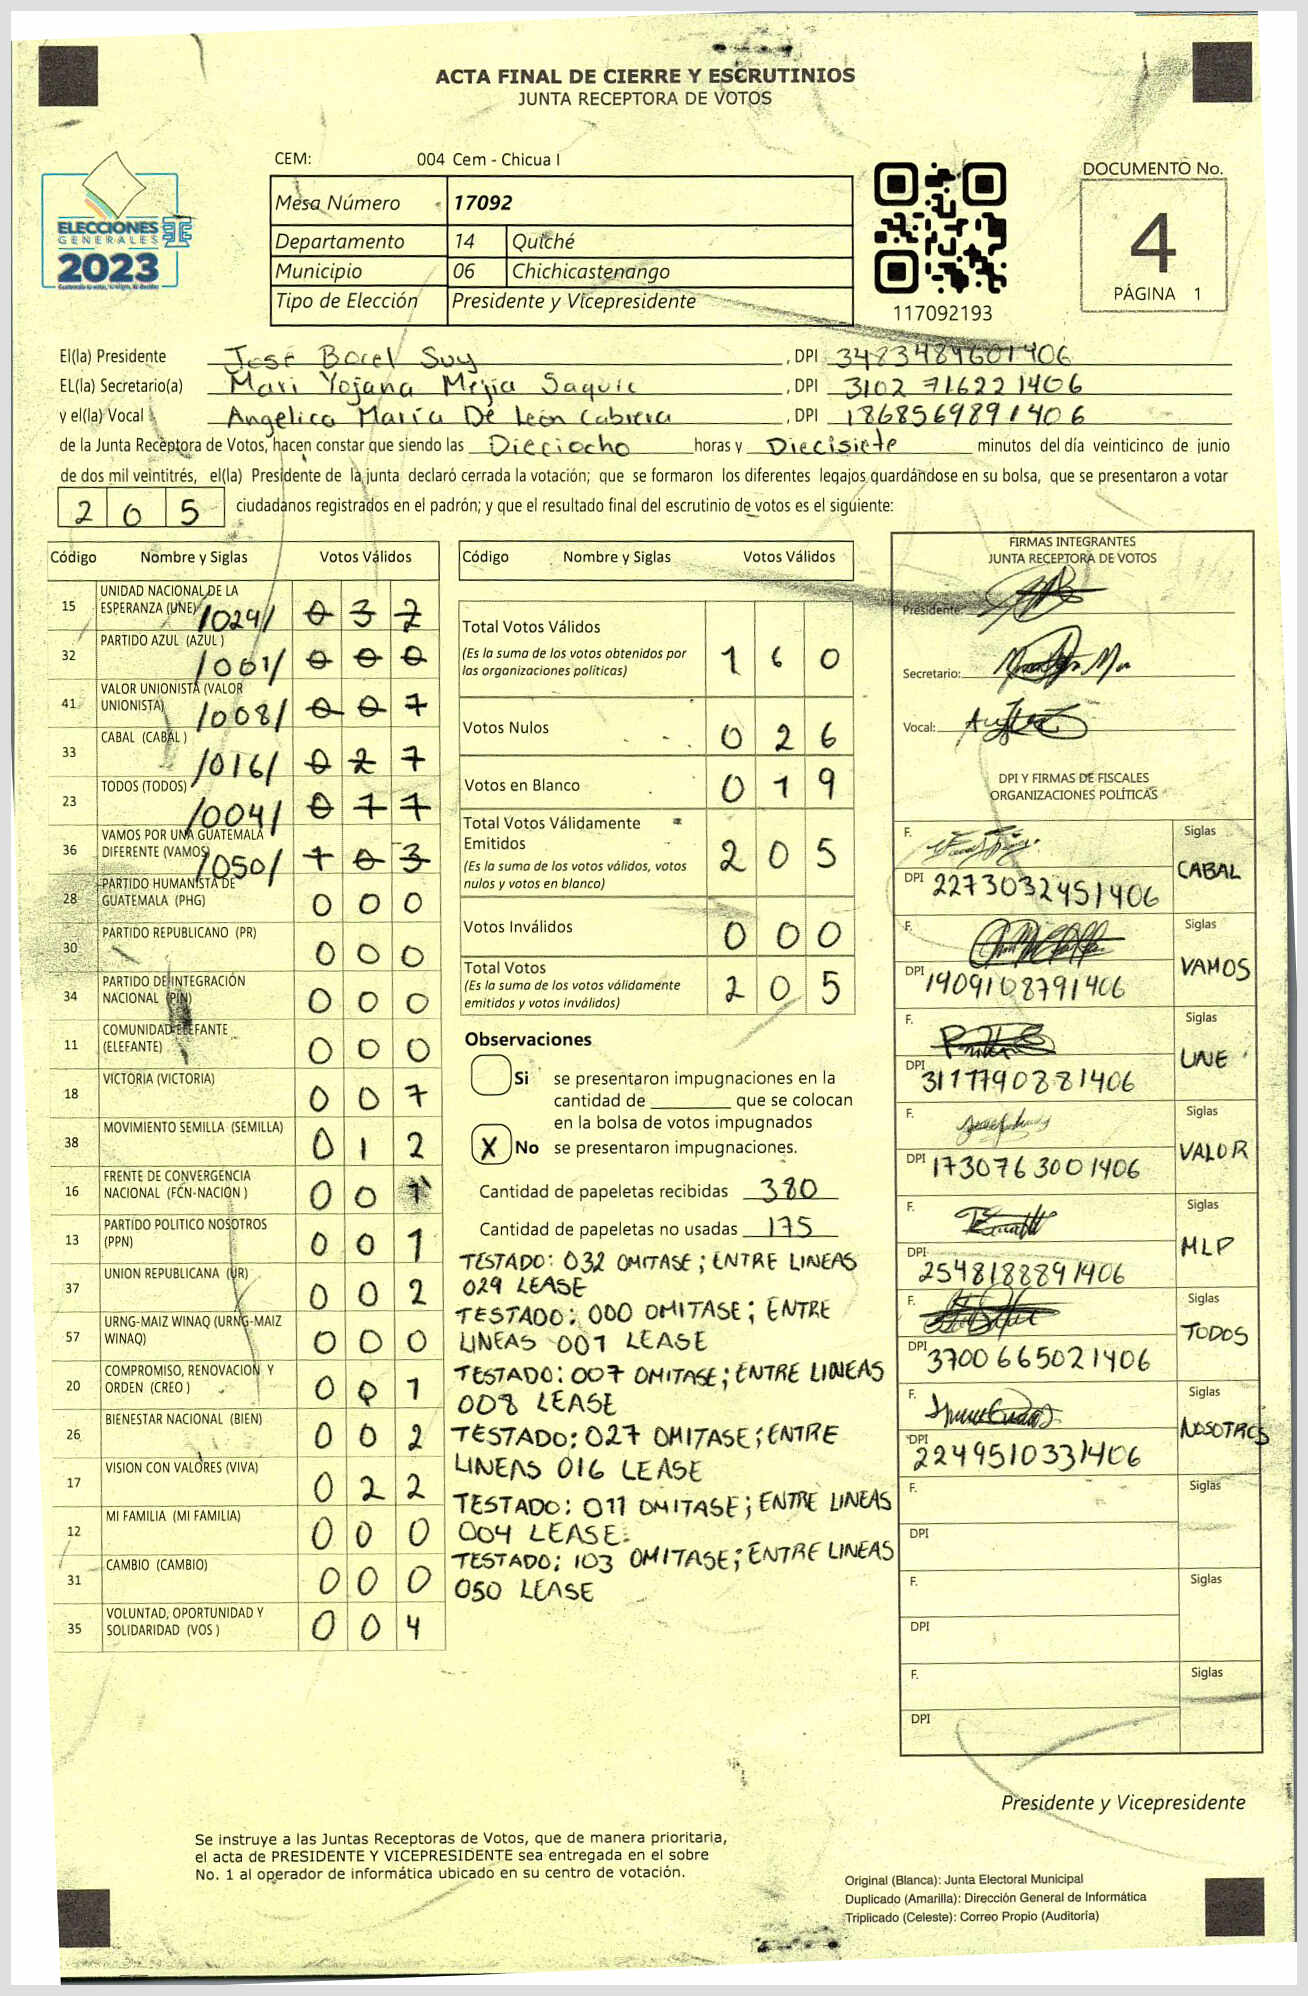 ACTA FINAL DE CIERRE Y ESCRUTINIOS
JUNTA RECEPTORA DE VOTOS
ELECCIONES
GENERALES
2023
CEM: 004 Cem - Chicua I
Mesa Número 17092
Departamento 14 Quiché
Municipio 06 Chichicastenango
Tipo de Elección Presidente y Vicepresidente
117092193
DOCUMENTO No.
4
PÁGINA 1
El(la) Presidente José Bocel Suy, DPI 3483489601406
EL(la) Secretario(a) Mari Yojana Mejía Saquic, DPI 3102 71622 1406
y el(la) Vocal Angélica María De León Cabrera, DPI 1868569891406
de la Junta Receptora de Votos, hacen constar que siendo las Dieciocho horas y Diecisiete minutos del día veinticinco de junio
de dos mil veintitrés, el(la) Presidente de la junta declaró cerrada la votación; que se formaron los diferentes legajos guardándose en su bolsa, que se presentaron a votar
205 ciudadanos registrados en el padrón; y que el resultado final del escrutinio de votos es el siguiente:
Código Nombre y Siglas Votos Válidos
15 UNIDAD NACIONAL DE LA
ESPERANZA (UNE) /029/ 0 3 2
32 PARTIDO AZUL (AZUL ) /001/ 0 0 0
41 VALOR UNIONISTA (VALOR
UNIONISTA) /008/ 0 0 7
33 CABAL (CABAL ) /016/ 0 2 7
23 TODOS (TODOS) /004/ 0 1 1
36 VAMOS POR UNA GUATEMALA
DIFERENTE (VAMOS) /050/ 1 0 3
28 PARTIDO HUMANISTA DE
GUATEMALA (PHG) 0 0 0
30 PARTIDO REPUBLICANO (PR) 0 0 0
34 PARTIDO DE INTEGRACIÓN
NACIONAL (PIN) 0 0 0
11 COMUNIDAD ELEFANTE
(ELEFANTE) 0 0 0
18 VICTORIA (VICTORIA) 0 0 7
38 MOVIMIENTO SEMILLA (SEMILLA) 0 1 2
16 FRENTE DE CONVERGENCIA
NACIONAL (FCN-NACION ) 0 0 1
13 PARTIDO POLITICO NOSOTROS
(PPN) 0 0 1
37 UNION REPUBLICANA (UR) 0 0 2
57 URNG-MAIZ WINAQ (URNG-MAIZ
WINAQ) 0 0 0
20 COMPROMISO, RENOVACION Y
ORDEN (CREO ) 0 0 1
26 BIENESTAR NACIONAL (BIEN) 0 0 2
17 VISION CON VALORES (VIVA) 0 2 2
12 MI FAMILIA (MI FAMILIA) 0 0 0
31 CAMBIO (CAMBIO) 0 0 0
35 VOLUNTAD, OPORTUNIDAD Y
SOLIDARIDAD (VOS ) 0 0 4
Código Nombre y Siglas Votos Válidos
Total Votos Válidos
(Es la suma de los votos obtenidos por
las organizaciones políticas) 1 6 0
Votos Nulos 0 2 6
Votos en Blanco 0 1 9
Total Votos Válidamente
Emitidos
(Es la suma de los votos válidos, votos
nulos y votos en blanco) 2 0 5
Votos Inválidos 0 0 0
Total Votos
(Es la suma de los votos válidamente
emitidos y votos inválidos) 2 0 5
Observaciones
Si se presentaron impugnaciones en la
cantidad de ________ que se colocan
en la bolsa de votos impugnados
X No se presentaron impugnaciones.
Cantidad de papeletas recibidas 380
Cantidad de papeletas no usadas 175
TESTADO: 032 OMITASE; ENTRE LINEAS
029 LEASE
TESTADO: 000 OMITASE; ENTRE
LINEAS 001 LEASE
TESTADO: 007 OMITASE; ENTRE LINEAS
008 LEASE
TESTADO: 027 OMITASE; ENTRE
LINEAS 016 LEASE
TESTADO: 011 OMITASE; ENTRE LINEAS
004 LEASE.
TESTADO; 103 OMITASE; ENTRE LINEAS
050 LEASE
FIRMAS INTEGRANTES
JUNTA RECEPTORA DE VOTOS
Presidente:
Secretario:
Vocal:
DPI Y FIRMAS DE FISCALES
ORGANIZACIONES POLÍTICAS
F. Siglas
DPI 2273032451406 CABAL
F. Siglas
DPI 1409108791406 VAMOS
F. Siglas
DPI 3117790881406 UNE
F. Siglas
DPI 1730763001406 VALOR
F. Siglas
DPI 2548188891406 MLP
F. Siglas
DPI 3700665021406 TODOS
F. Siglas
DPI 2249510331406 NOSOTROS
F. Siglas
DPI
F. Siglas
DPI
F. Siglas
DPI
Presidente y Vicepresidente
Se instruye a las Juntas Receptoras de Votos, que de manera prioritaria,
el acta de PRESIDENTE Y VICEPRESIDENTE sea entregada en el sobre
No. 1 al operador de informática ubicado en su centro de votación.
Original (Blanca): Junta Electoral Municipal
Duplicado (Amarilla): Dirección General de Informática
Triplicado (Celeste): Correo Propio (Auditoría)